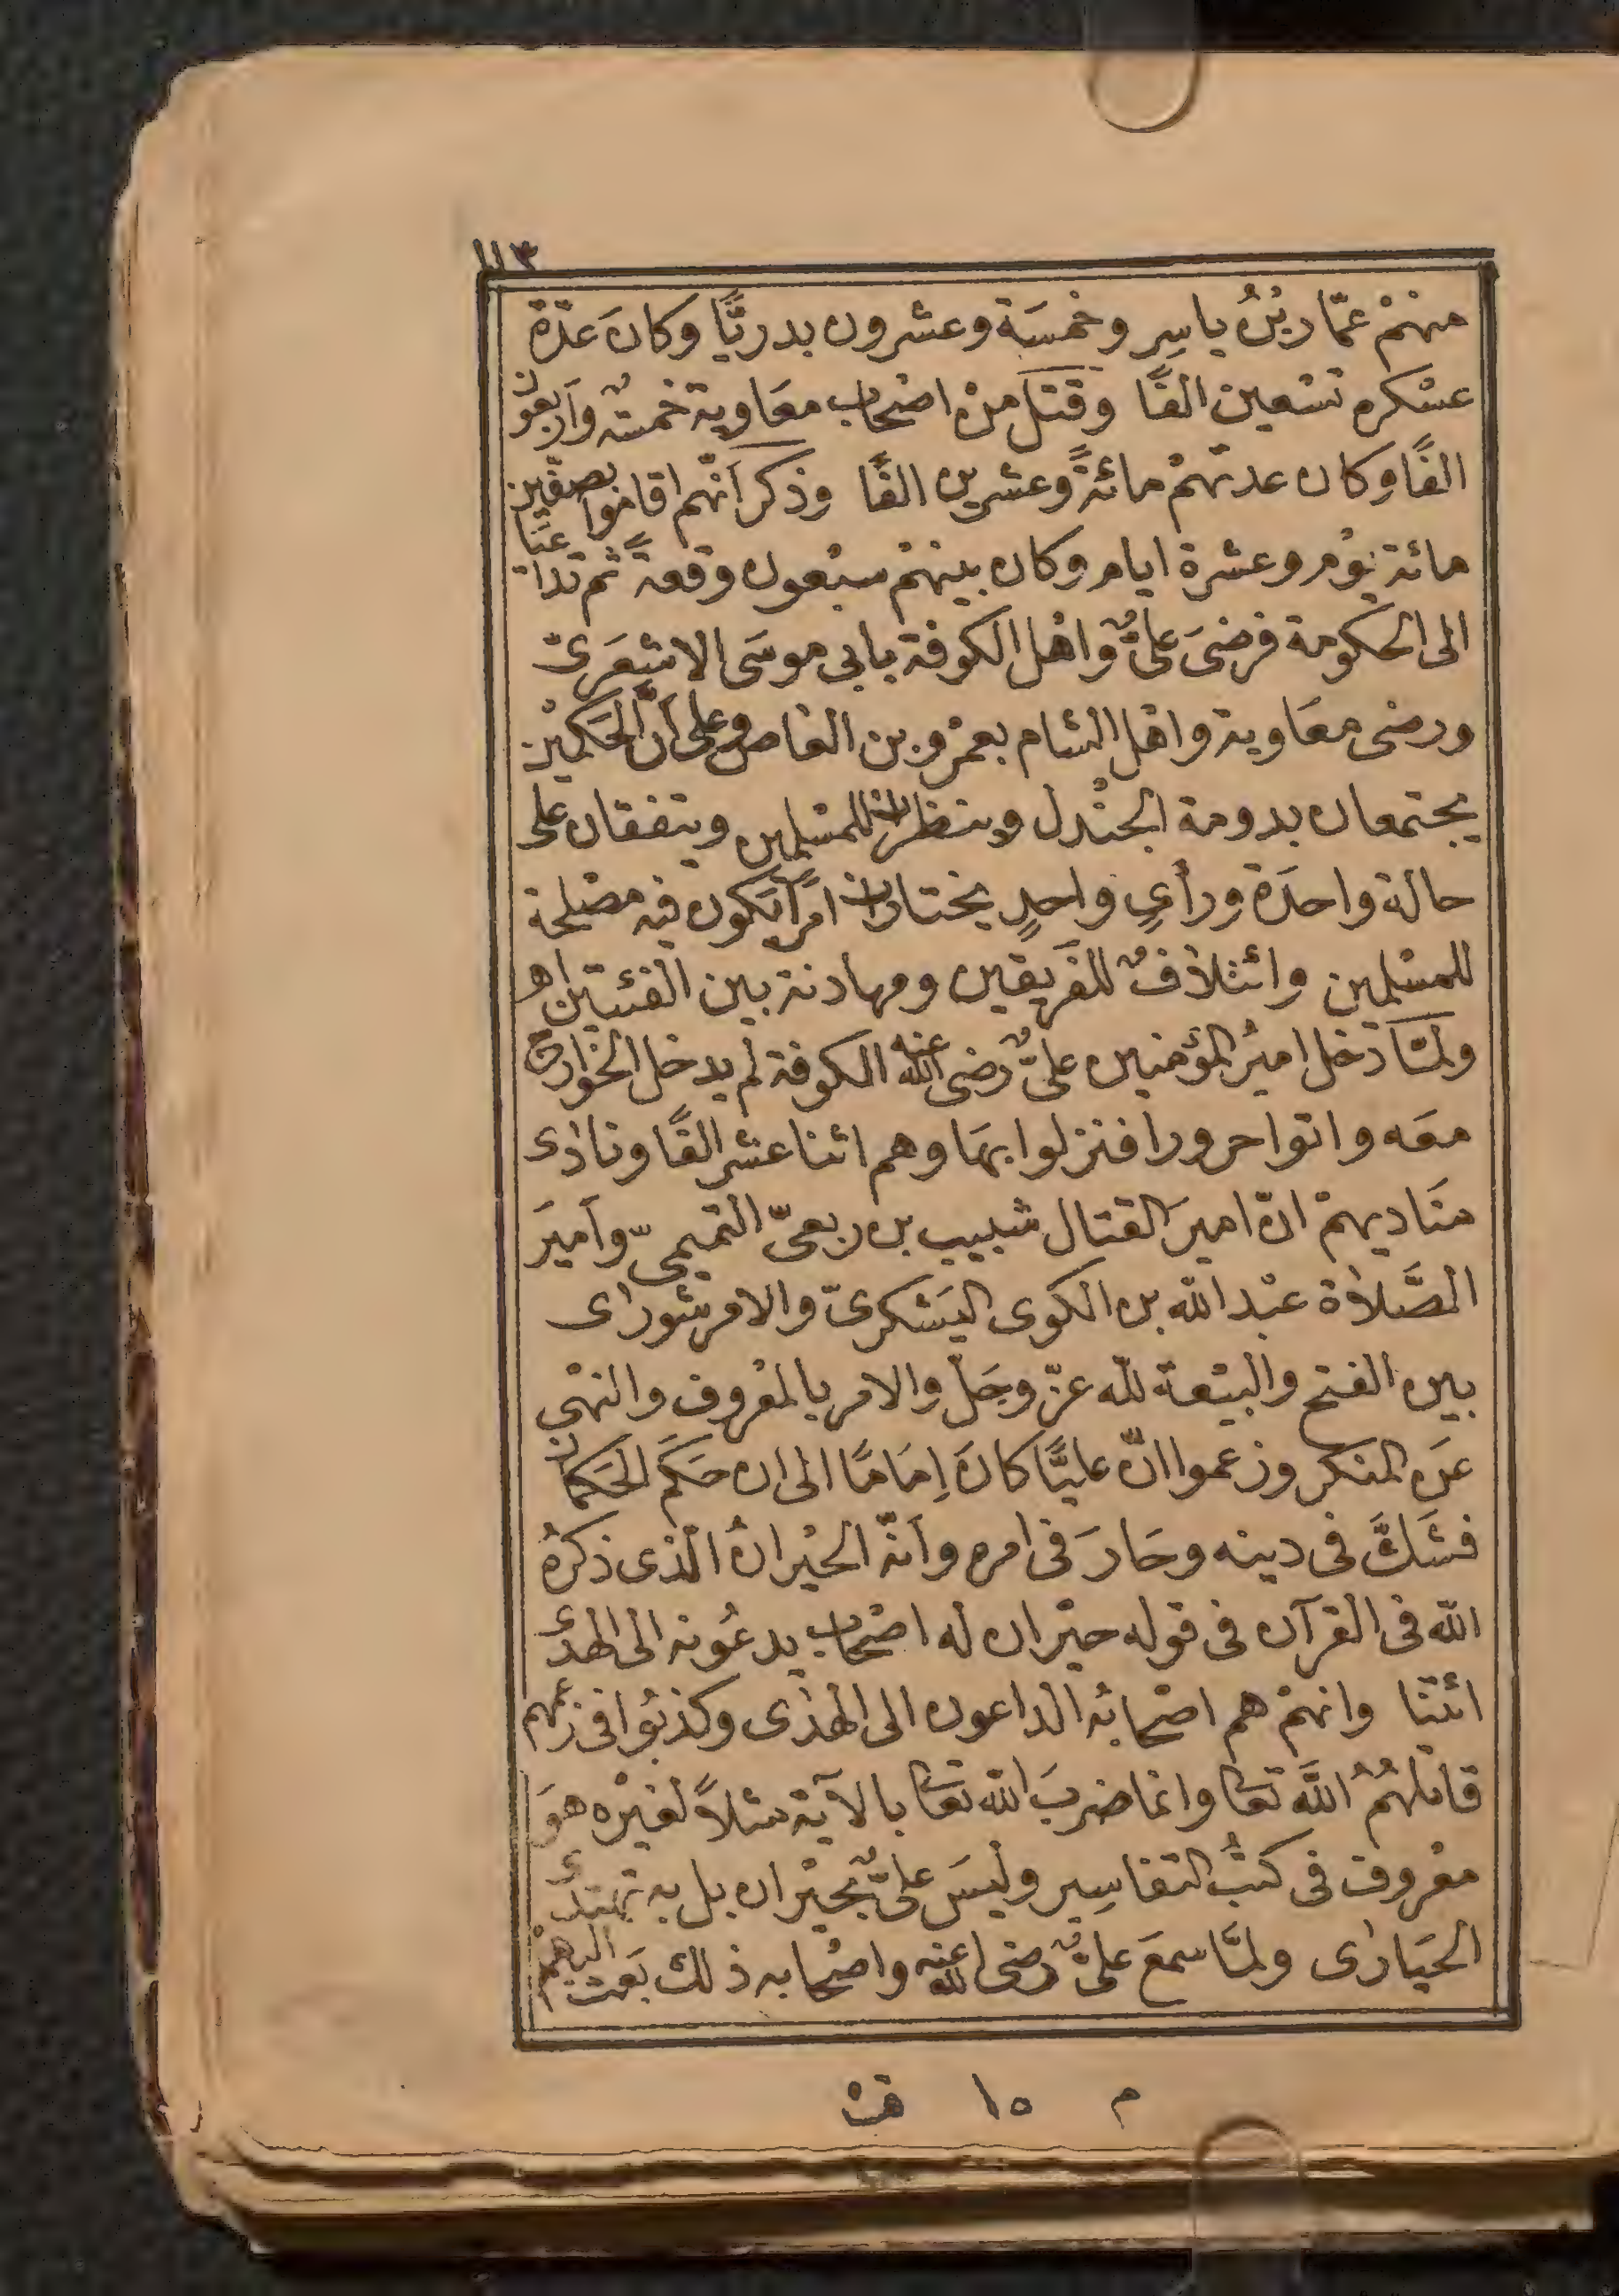 ١١٣
منهمْ عمّار بْنُ ياسِرِ وخمسَة وعشرون بدريًّا وكانَ عدّة
عسْكره تسْعين الفًا وقتل منْ اصْحاب معَاوية خمسةٌ واَربعون
الفًا وكان عدتهمْ مائةً وعشرين الفًا وذكر اَنّهم اقاموا بصفّين
مائة يوْم وعشرة ايام وكان بينهمْ سبْعون وقعةً ثم تداعيَا
الى الحكومة فرضىَ علىٌّ واهْل الكوفة بابى موسَى الاشعَرىّ
ورضى معَاوية واهْل الشام بعمْرو بن العاص وعلى انّ الحَكمَيْن
يجتمعان بدومة الجنْدل وينظران للمسْلمين ويتفقان على
حالة واحدَة ورأىٍ واحدٍ يختاران امرًا تكون فيه مصْلحة
للمسْلمين وائتلافٌ للفَريقين ومهادنة بين الفئتين اهـ
ولمّا دخل اميرُ المؤمنين علىٌّ رضى الله عنه الكوفة لم يدخل الخوارج
معَه واتوا حرورا فنزلوا بهَا وهم اثنا عشر الفًا ونادٰى
مَناديهمْ انّ اميرَ القتال شبيب بن ربعىّ التميمىّ واَميرَ
الصَّلاٰة عبْد الله بن الكوى اليَشكرىّ والامر شورٰى
بين الفتح والبيْعة لله عزّ وجَلّ والامر بالمعْروف والنهْى
عَن المنكر وزعموا انّ عليًّا كانَ اِمَامًا الى ان حَكَّم الحَكمان
فشَكَّ فى دينه وحَارَ فى امره واَنّه الحيْرانُ الّذى ذكرَهُ
الله فى القرآن فى قوله حيْران له اصْحاب يدعُونه الى الهدٰى
ائتنا وانهمْ هم اصْحابُه الداعون الى الهدٰى وكذبُوا فى زعمهم
قاتلهُمُ اللهَ تعا وانما ضربَ الله تعا بالآية مثلاً لغيْره هوَ
معْروف فى كتبُ التفاسِير وليسَ علىٌّ بحيْران بل به تهتدٰى
الحَيَارٰى ولمّا سمعَ علىٌّ رضى الله عنه واصْحابه ذلك بَعث اليهمْ
م ١٥ فت